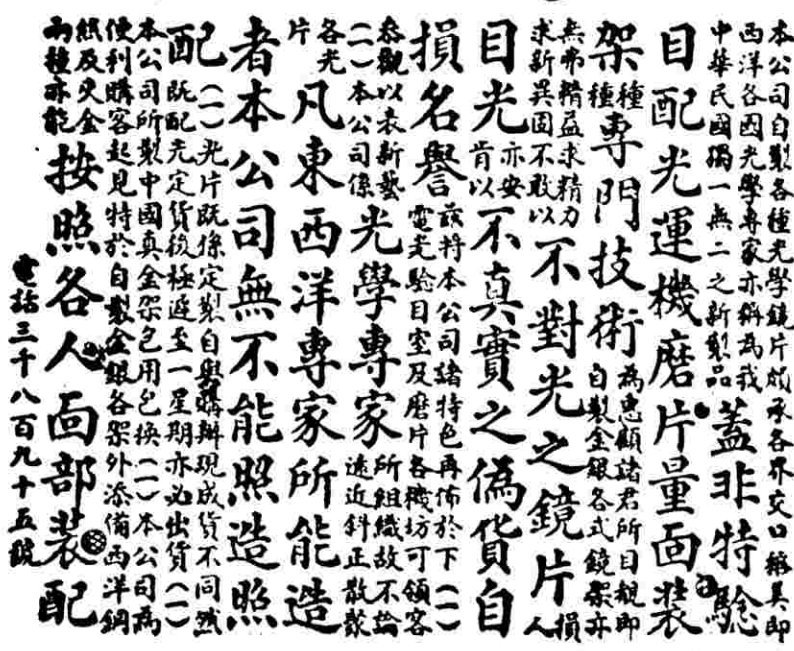 本公司自製各種光學鏡片頗承各界交口稱美即
西洋各國光學專家亦稱為我
中華民國獨一無二之新製品
蓋非特驗
目配光運機磨片量面裝
架
種
種
專門技術
為惠顧諸君所目覩即
自製金銀各式鏡架亦
無弗精益求精力
求新異固不敢以
不對光之鏡片
損
人
目光
亦安
肯以
不真實之偽貨自
損名譽
茲將本公司諸特色再佈於下(一)
電光驗目室及磨片各機坊可領客
參觀以表新藝
(一)本公司係
光學專家
所組織故不論
遠近斜正散聚
各光
片
凡東西洋專家所能造
者本公司無不能照造照
配
(一)光片既係定製自與購辦現成貨不同然
既配光定貨後極遲至一星期亦必出貨(一)
本公司所製中國真金架包用包換(一)本公司為
便利購客起見特於自製金銀各架外添備西洋鋼
絲及夾金
兩種亦能
按照各人面部裝配
電話三千八百九十五號